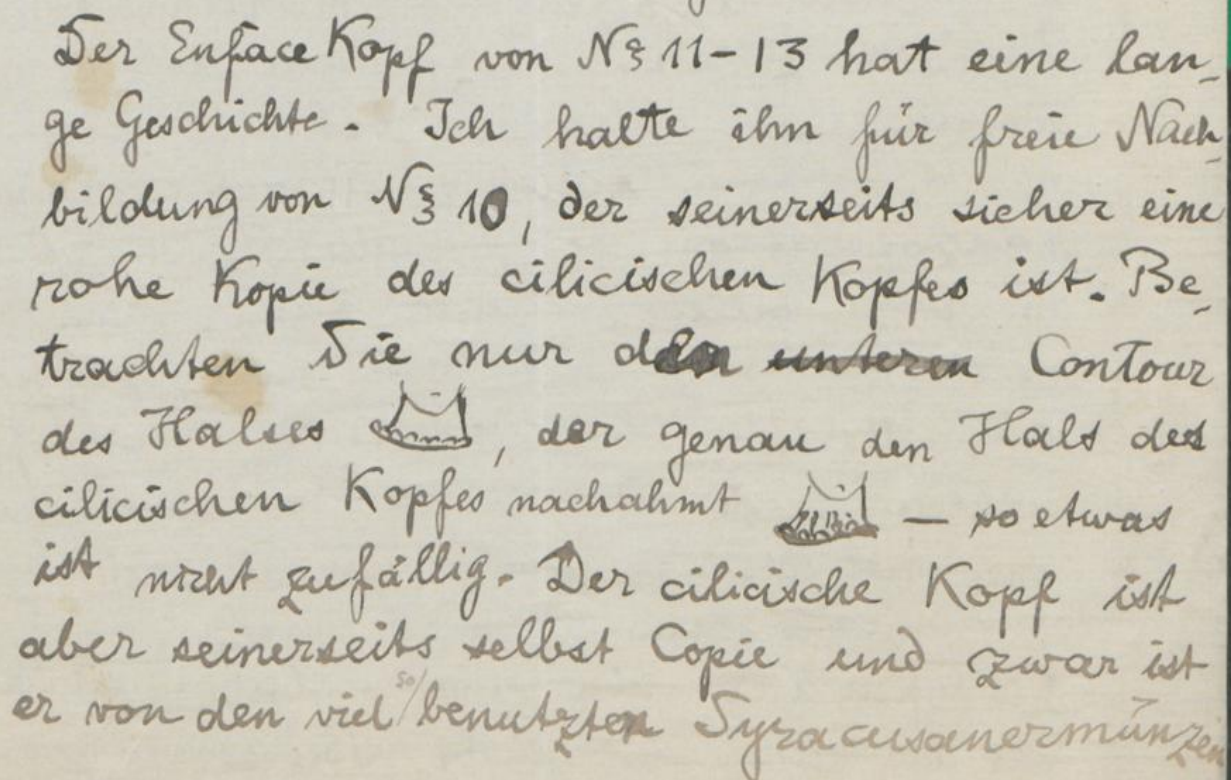 Der Enface Kopf von No 11-13 hat eine lan-
ge Geschichte. Ich halte ihn für freie Nach-
bildung von No 10, der seinerseits sicher eine
rohe Kopie des cilicischen Kopfes ist. Be-
trachten Sie nur den unteren Contour
des Halses , der genau den Hals des
cilicischen Kopfes nachahmt — so etwas
ist nicht zufällig. Der cilicische Kopf ist
aber seinerseits selbst Copie und zwar ist
er von den viel so benutzten Syracusanermünzen